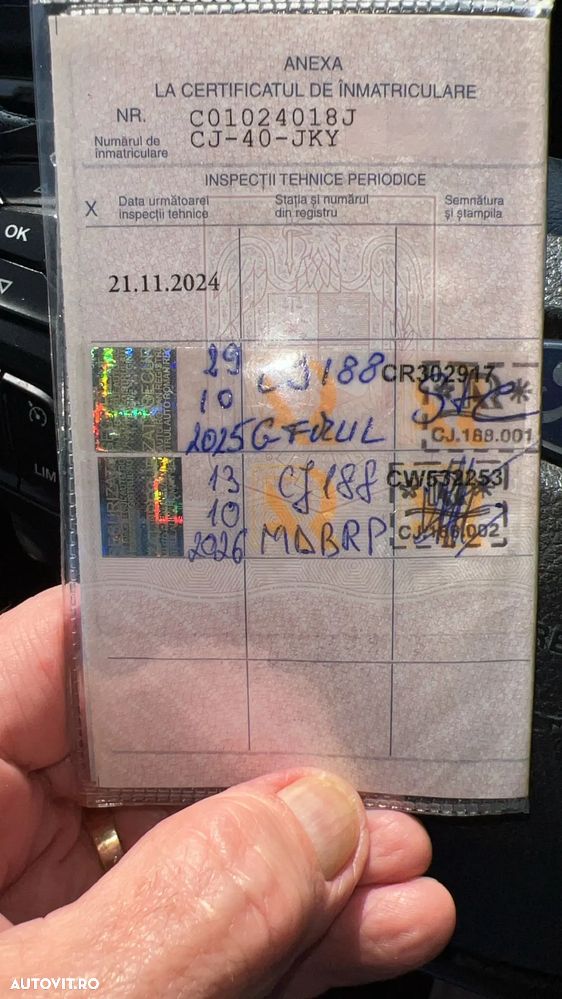 ANEXA
LA CERTIFICATUL DE ÎNMATRICULARE
NR. C01024018J
Numărul de înmatriculare CJ-40-JKY
INSPECȚII TEHNICE PERIODICE
X
Data următoarei inspecții tehnice
Stația și numărul din registru
Semnătura și ștampila
21.11.2024
29
10
2025
CJ188
CR302917
CJ.188.001
13
10
2026
CJ188
MDBRP
CW532253
OK
LIM
AUTOVIT.RO